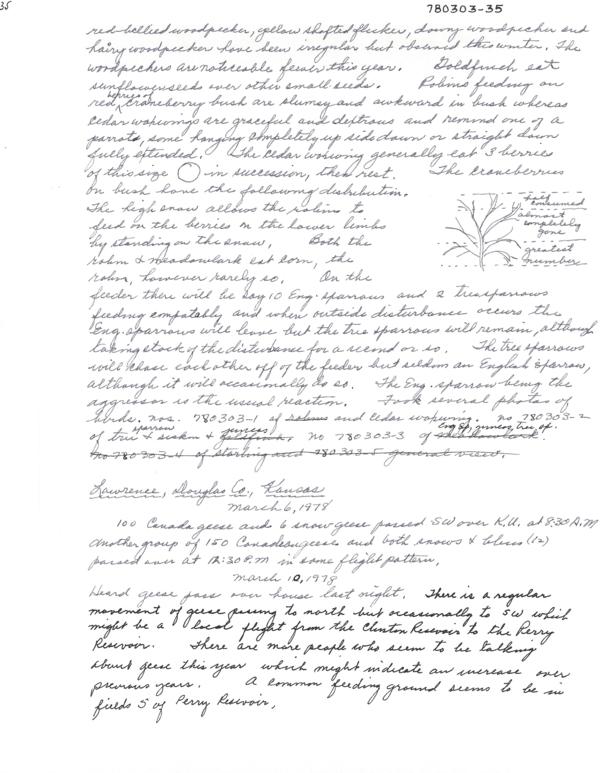 35
780303-35
red-bellied woodpecker, yellow shafted flicker, downy woodpecker and
hairy woodpecker have been irregular but observed this winter. The
woodpeckers are noticeable fewer this year. Goldfinch eat
sunflower seeds over other small seeds. Robins feeding on
berries of
red craneberry bush are clumsy and awkward in bush whereas
Cedar waxwings are graceful and dextrous and remind one of a
parrots, some hanging completely up side down or straight down
fully extended. The cedar waxwing generally eat 3 berries
of this size in succession, then rest. The craneberries
on bush have the following distribution.
half
consumed
almost
completely
gone
greatest
number
The high snow allows the robins to
feed on the berries on the lower limbs
by standing on the snow. Both the
robin & meadowlark eat corn, the
robin, however rarely so. On the
feeder there will be say 10 Eng. sparrows and 2 treesparrows
feeding compatably and when outside disturbance occurs the
Eng. sparrows will leave but the tree sparrows will remain, although
taking stock of the disturbance for a second or so. The tree sparrows
will chase each other off of the feeder but seldom an English sparrow,
although it will occasionally do so. The Eng. sparrow being the
aggressor is the usual reaction. Took several photos of
birds. nos. 780303-1 of robins and Cedar waxwing. no 780303-2
sparrow juncos Eng sp, juncos, tree sp.
of tree & siskin & goldfinch. no 780303-3 of
no 780303-4 of starling and 780303-5 general view.
Lawrence, Douglas Co., Kansas
March 6, 1978
100 Canada geese and 6 snow geese passed SW over K.U. at 8:30 A.M
Another group of 150 Canadean geese and both snows & blues (12)
passed over at 12:30 P.M in same flight pattern.
March 10, 1978
Heard geese pass over house last night. There is a regular
movement of geese passing to north but occasionally to SW which
might be a local flight from the Clinton Resevoir to the Perry
Resevoir. There are more people who seem to be talking
about geese this year which might indicate an increase over
previous years. A common feeding ground seems to be in
fields S of Perry Resevoir.